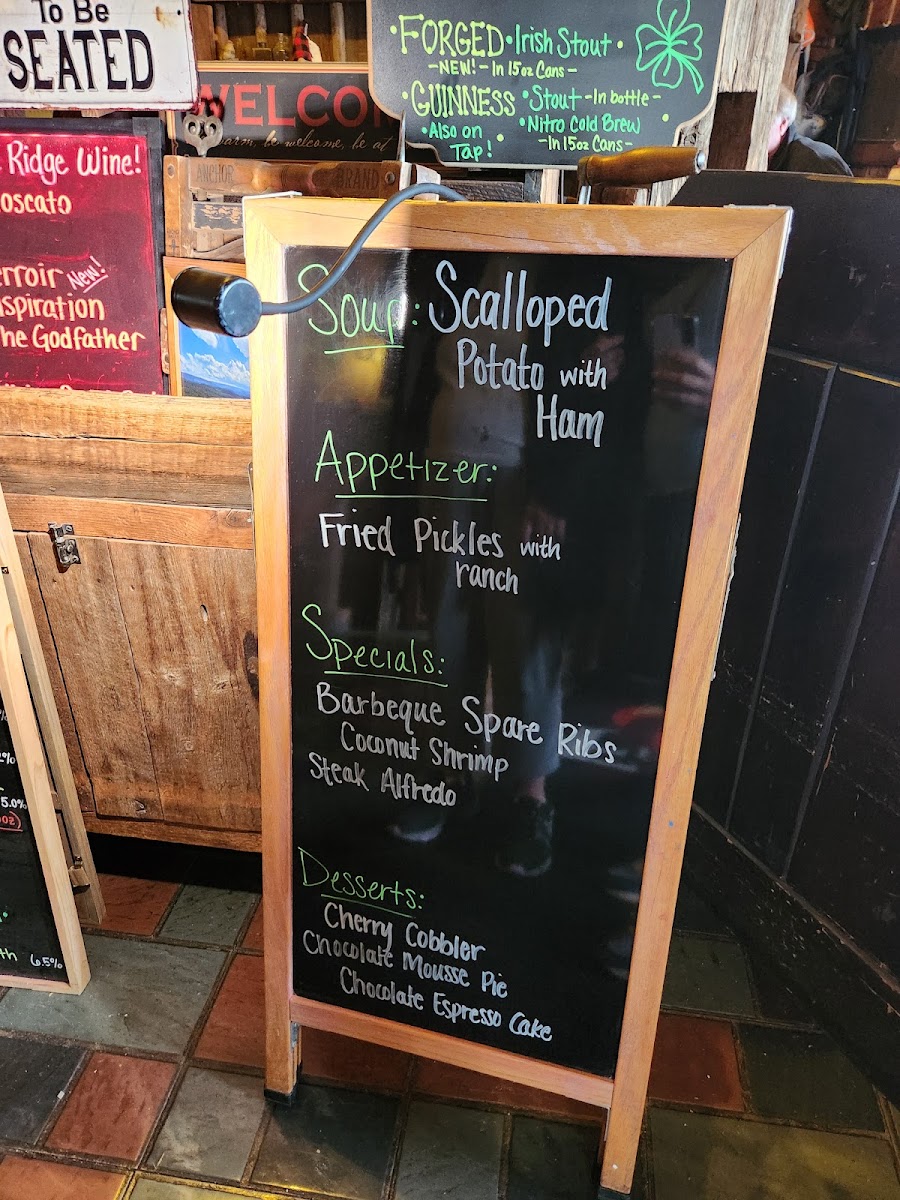 To Be
SEATED
WELCO
warm, be welcome, be at
FORGED • Irish Stout •
- NEW! - In 15oz Cans -
• GUINNESS • Stout - In bottle -
• Also on Tap!
• Nitro Cold Brew
- In 15oz Cans -
Ridge Wine!
oscato
erroir New!
nspiration
he Godfather
ANCHOR BRAND
Soup: Scalloped
Potato with
Ham
Appetizer:
Fried Pickles with
ranch
Specials:
Barbeque Spare Ribs
Coconut Shrimp
Steak Alfredo
Desserts:
Cherry Cobbler
Chocolate Mousse Pie
Chocolate Espresso Cake
5.0%
th 6.5%